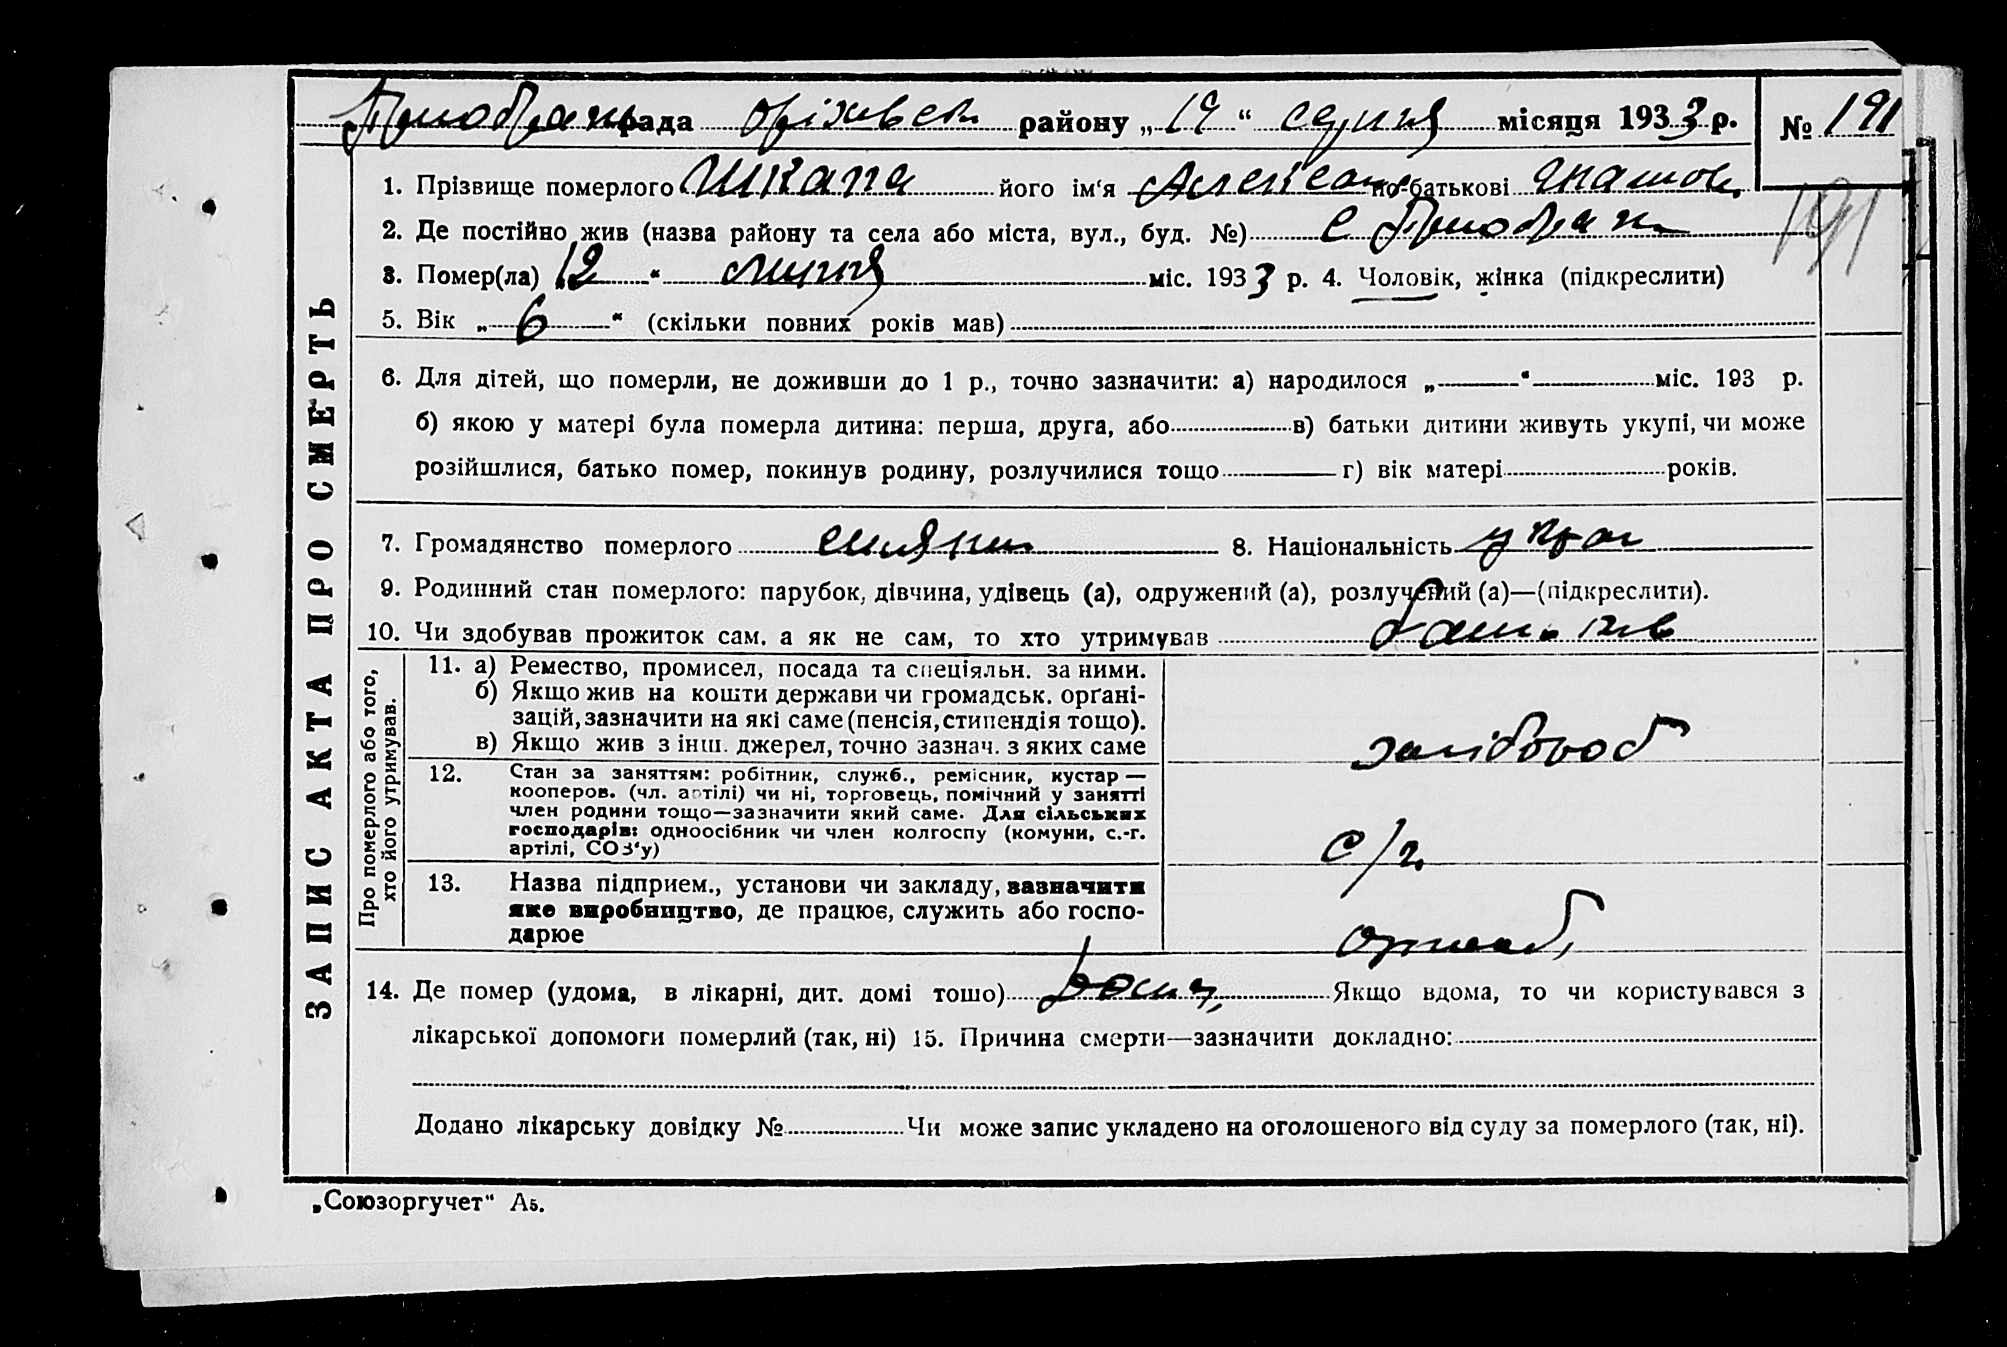 рада Оріхівськ району „ 19 “ серпня місяця 1933 р. № 191
1. Прізвище померлого Шкапа його ім‘я Алексан по-батькові Гнатов
191
2. Де постійно жив (назва району та села або міста, вул., буд. №) с
3. Помер(ла) 12 “ липня міс. 1933 р. 4. Чоловік, жінка (підкреслити)
5. Вік „ 6 “ (скільки повних років мав)
6. Для дітей, що померли, не доживши до 1 р., точно зазначити: а) народилося „ “ міс. 193 р.
б) якою у матері була померла дитина: перша, друга, або в) батьки дитини живуть укупі, чи може
розійшлися, батько помер, покинув родину, розлучилися тощо г) вік матері років.
7. Громадянство померлого 8. Національність укра
9. Родинний стан померлого: парубок, дівчина, удівець (а), одружений (а), розлучений (а)—(підкреслити).
10. Чи здобував прожиток сам. а як не сам, то хто утримував батьків
ЗАПИС АКТА ПРО СМЕРТЬ
Про померлого або того,
хто його утримував.
11. а) Ремество, промисел, посада та спеціяльн. за ними.
б) Якщо жив на кошти держави чи громадськ. орґані-
зацій, зазначити на які саме (пенсія, стипендія тощо).
в) Якщо жив з інш. джерел, точно зазнач. з яких саме
хлібороб
12. Стан за заняттям: робітник, служб., ремісник, кустар —
кооперов. (чл. артілі) чи ні, торговець, помічний у занятті
член родини тощо—зазначити який саме. Для сільських
господарів: одноосібник чи член колгоспу (комуни, с.-г.
артілі, СОЗ‘у)
с/г
13. Назва підприєм., установи чи закладу, зазначити
яке виробництво, де працює, служить або госпо-
дарює
14. Де помер (удома, в лікарні, дит. домі тошо) дома Якщо вдома, то чи користувався з
лікарської допомоги померлий (так, ні) 15. Причина смерти—зазначити докладно:
Додано лікарську довідку № Чи може запис укладено на оголошеного від суду за померлого (так, ні).
„Союзоргучет“ А5.